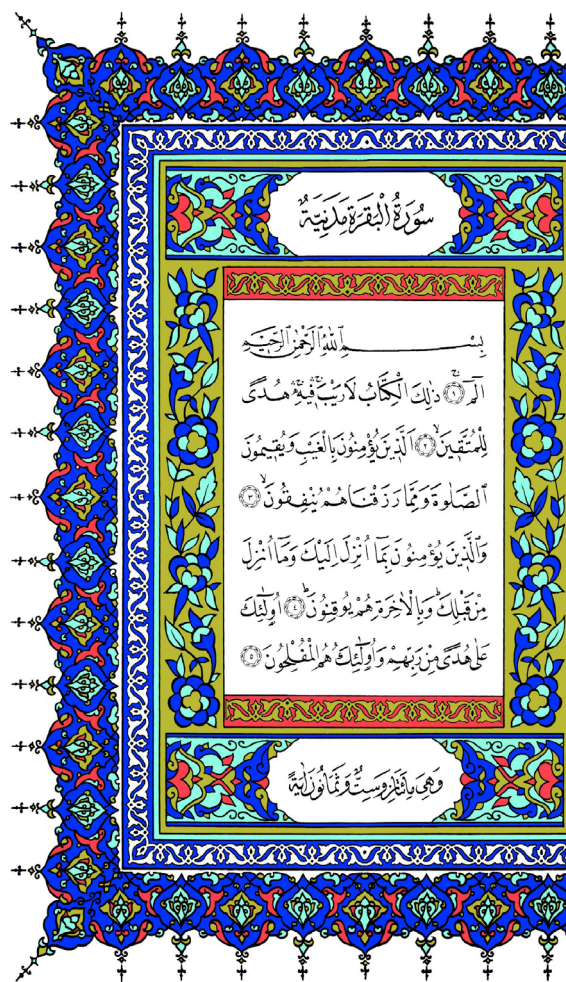 سُورَةُ الْبَقَرَةِ مَدَنِيَّةٌ
بِسْمِ اللّٰهِ الرَّحْمٰنِ الرَّحٖيمِ
الٓمٓ ۚ ﴿١﴾ ذٰلِكَ الْكِتَابُ لَا رَيْبَۚۛ فٖيهِۚۛ هُدًى
لِلْمُتَّقٖينَۙ ﴿٢﴾ اَلَّذٖينَ يُؤْمِنُونَ بِالْغَيْبِ وَيُقٖيمُونَ
الصَّلٰوةَ وَمِمَّا رَزَقْنَاهُمْ يُنْفِقُونَۙ ﴿٣﴾
وَالَّذٖينَ يُؤْمِنُونَ بِمَٓا اُنْزِلَ اِلَيْكَ وَمَٓا اُنْزِلَ
مِنْ قَبْلِكَۚ وَبِالْاٰخِرَةِ هُمْ يُوقِنُونَؕ ﴿٤﴾ اُو۬لٰٓئِكَ
عَلٰى هُدًى مِنْ رَبِّهِمْ وَاُو۬لٰٓئِكَ هُمُ الْمُفْلِحُونَ ﴿٥﴾
وَهِيَ مِائَتَانِ وَسِتٌّ وَثَمَانُونَ اٰيَةً